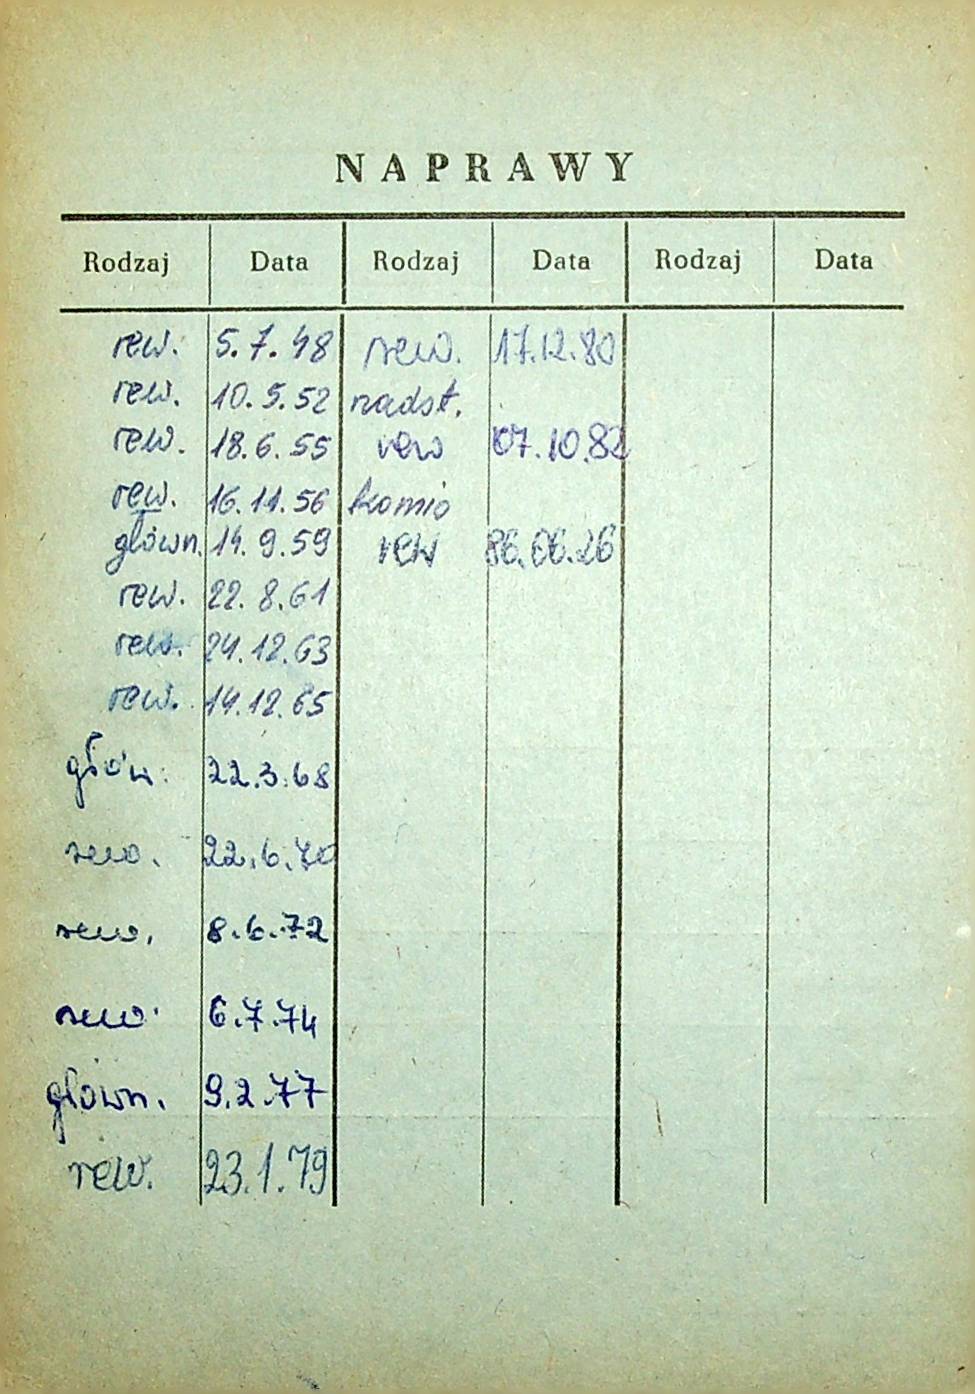 NAPRAWY
Rodzaj Data Rodzaj Data Rodzaj Data
rew. 5.7.48 rew. 17.12.80
rew. 10.5.52 nadst.
rew. 18.6.55 rew 07.10.82
rew. 16.11.56
główn. 14.9.59 rew 86.06.26
rew. 22.8.61
rew. 24.12.63
rew. 14.12.65
głów. 22.3.68
rew. 22.6.70
rew. 8.6.72
rew. 6.7.74
główn. 9.2.77
rew. 23.1.79